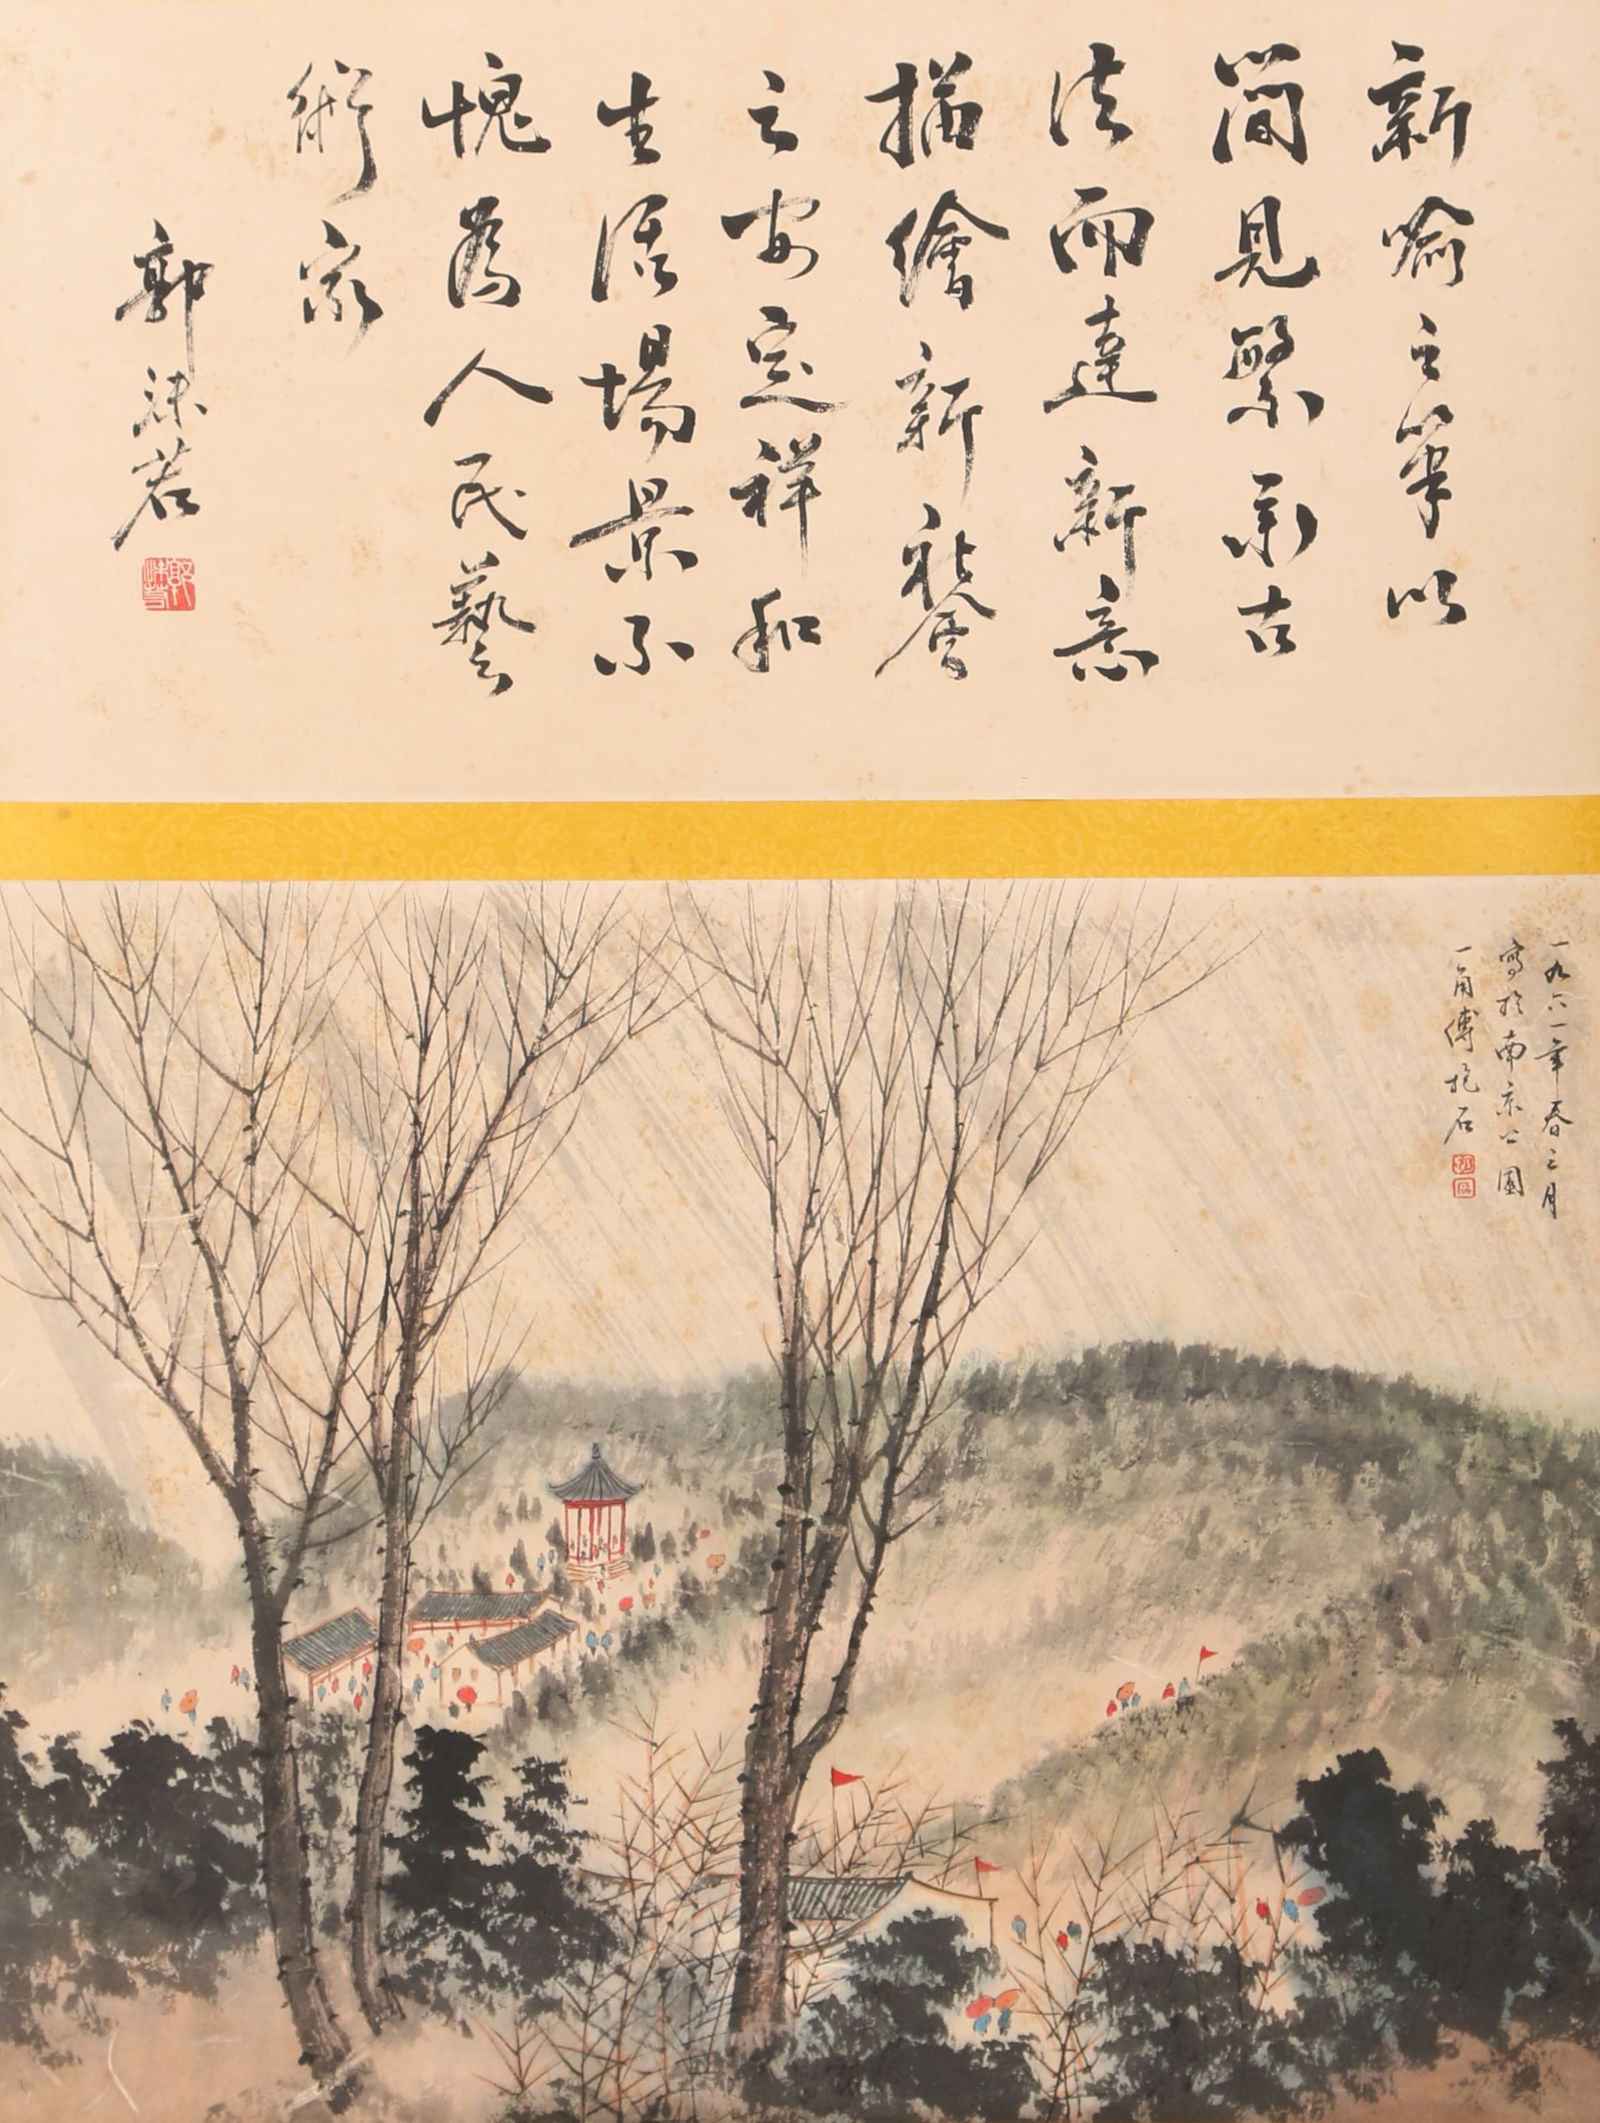 新喻之筆以
簡見繁承古
法而達新意
描繪新社會
之安定祥和
生活場景不
愧為人民藝
術家
郭沫若
郭沫若
一九六一年春二月
寫於南京公園
一角傅抱石